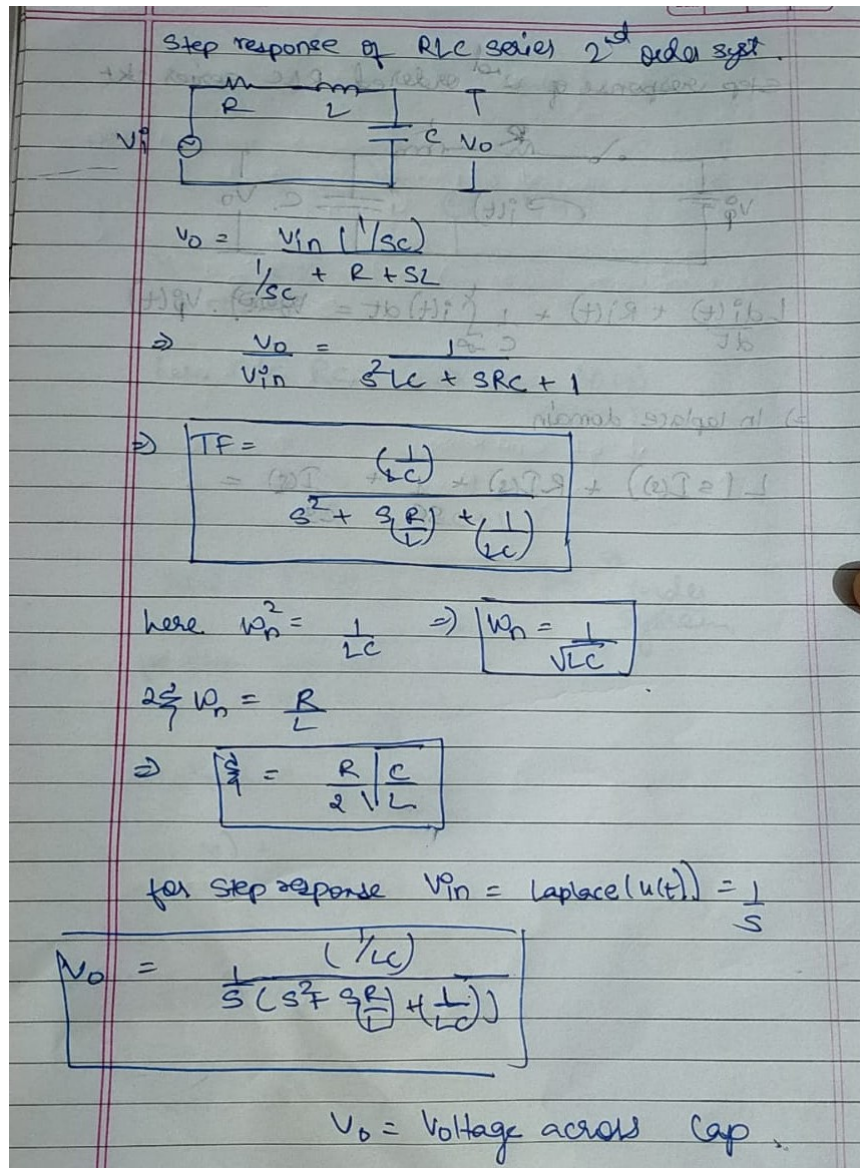 Step response of RLC series 2nd order syst.
R L
Vi C Vo
Vo = Vin (1/sc)
1/sc + R + SL
⇒ Vo/Vin = 1/(s²LC + SRC + 1)
⇒ TF = (1/LC)
s² + s(R/L) + (1/LC)
here ωn² = 1/LC ⇒ ωn = 1/√LC
2ξ ωn = R/L
⇒ ξ = R/2 √C/L
for step response Vin = Laplace(u(t)) = 1/S
Vo = (1/LC)
1/S (s² + s(R/L) + (1/LC))
Vo = Voltage across Cap.